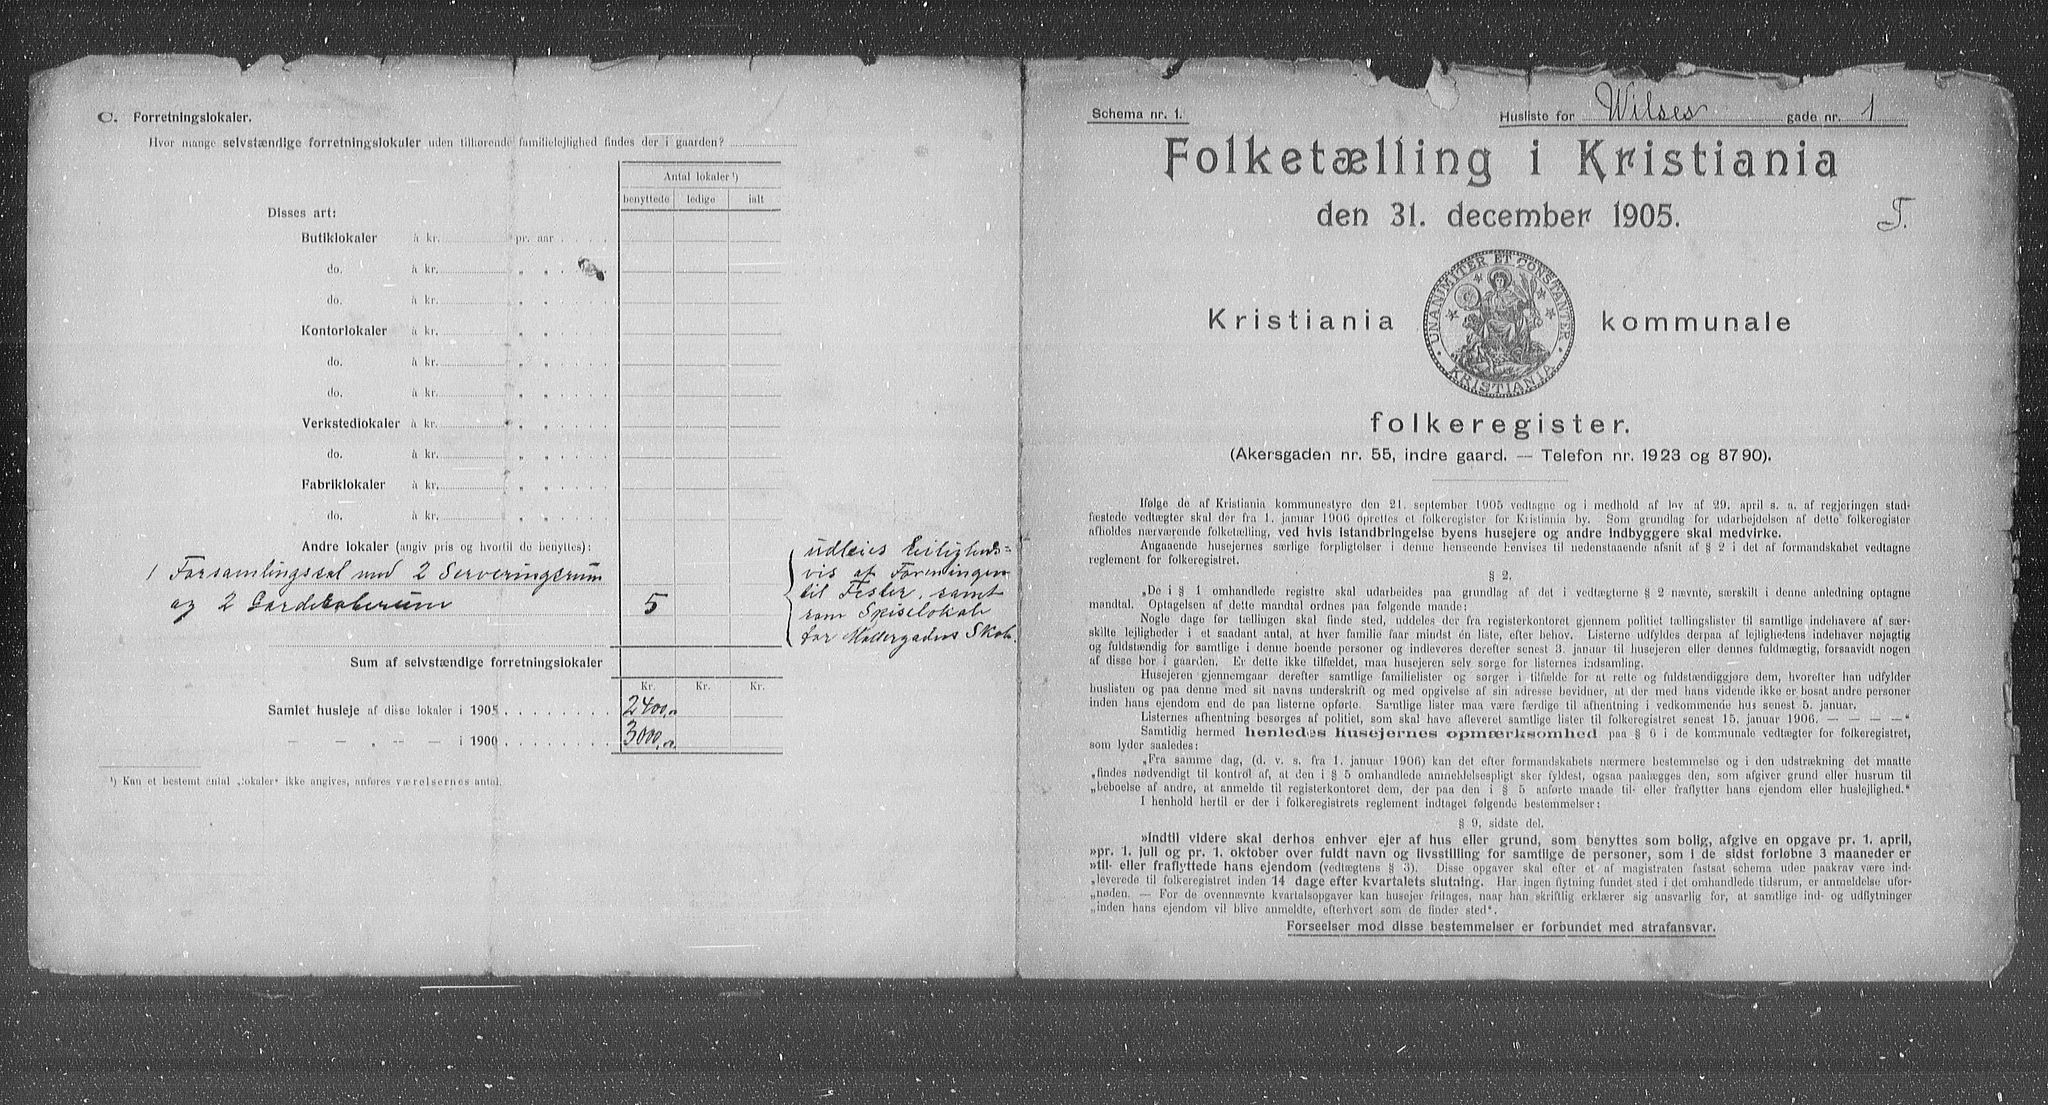 C. Forretningslokaler.
Hvor mange selvstændige forretningslokaler uden tilhørende familielejlighed findes der i gaarden?
Antal lokaler ¹)
benyttede ledige ialt
Disses art:
Butiklokaler à kr. pr. aar
do. à kr. „ „
do. à kr. „ „
Kontorlokaler à kr. „ „
do. à kr. „ „
do. à kr. „ „
Verkstedlokaler à kr. „ „
do. à kr. „ „
Fabriklokaler à kr. „ „
do. à kr. „ „
Andre lokaler (angiv pris og hvortil de benyttes):
1 Forsamlingssal med 2 Serveringsrum
og 2 Garderoberum 5
udleies leiligheds-
vis af Foreningen
til Fester, samt
som Spiselokale
for Møllergadens Skole.
Sum af selvstændige forretningslokaler
Kr. Kr. Kr.
Samlet husleje af disse lokaler i 1905 2400,00
— — „ — — i 1900 3000,00
¹) Kan et bestemt antal „lokaler“ ikke angives, anføres værelsernes antal.
Schema nr. 1.
Husliste for Wilses gade nr. 1
Folketælling i Kristiania
den 31. december 1905.
T.
UNANIMITER ET CONSTANTER
KRISTIANIA
Kristiania kommunale
folkeregister.
(Akersgaden nr. 55, indre gaard. — Telefon nr. 1923 og 8790).
Ifølge de af Kristiania kommunestyre den 21. september 1905 vedtagne og i medhold af lov af 29. april s. a. af regjeringen stad-
fæstede vedtægter skal der fra 1. januar 1906 oprettes et folkeregister for Kristiania by. Som grundlag for udarbejdelsen af dette folkeregister
afholdes nærværende folketælling, ved hvis istandbringelse byens husejere og andre indbyggere skal medvirke.
Angaaende husejernes særlige forpligtelser i denne henseende henvises til nedenstaaende afsnit af § 2 i det af formandskabet vedtagne
reglement for folkeregistret.
§ 2.
„De i § 1 omhandlede registre skal udarbeides paa grundlag af det i vedtægterne § 2 nævnte, særskilt i denne anledning optagne
mandtal. Optagelsen af dette mandtal ordnes paa følgende maade:
Nogle dage før tællingen skal finde sted, uddeles der fra registerkontoret gjennem politiet tællingslister til samtlige indehavere af sær-
skilte lejligheder i et saadant antal, at hver familie faar mindst én liste, efter behov. Listerne udfyldes derpaa af lejlighedens indehaver nøjagtig
og fuldstændig for samtlige i denne boende personer og indleveres derefter senest 3. januar til husejeren eller dennes fuldmægtig, forsaavidt nogen
af disse bor i gaarden. Er dette ikke tilfældet, maa husejeren selv sørge for listernes indsamling.
Husejeren gjennemgaar derefter samtlige familielister og sørger i tilfælde for at rette og fuldstændiggjøre dem, hvorefter han udfylder
huslisten og paa denne med sit navns underskrift og med opgivelse af sin adresse bevidner, at der med hans vidende ikke er bosat andre personer
inden hans ejendom end de paa listerne opførte. Samtlige lister maa være færdige til afhentning i vedkommende hus senest 5. januar.
Listernes afhentning besørges af politiet, som skal have afleveret samtlige lister til folkeregistret senest 15. januar 1906. — — — —“
Samtidig hermed henledes husejernes opmærksomhed paa § 6 i de kommunale vedtægter for folkeregistret,
som lyder saaledes:
„Fra samme dag, (d. v. s. fra 1. januar 1906) kan det efter formandskabets nærmere bestemmelse og i den udstrækning det maatte
„findes nødvendigt til kontrol af, at den i § 5 omhandlede anmeldelsespligt sker fyldest, ogsaa paalægges den, som afgiver grund eller husrum til
„beboelse af andre, at anmelde til registerkontoret dem, der paa den i § 5 anførte maade til- eller fraflytter hans ejendom eller huslejlighed.“
I henhold hertil er der i folkeregistrets reglement indtaget følgende bestemmelser:
§ 9, sidste del.
„Indtil videre skal derhos enhver ejer af hus eller grund, som benyttes som bolig, afgive en opgave pr. 1. april,
„pr. 1. juli og pr. 1. oktober over fuldt navn og livsstilling for samtlige de personer, som i de sidst forløbne 3 maaneder er
„til- eller fraflyttede hans ejendom (vedtægtens § 3). Disse opgaver skal efter et af magistraten fastsat schema uden paakrav være ind-
„leverede til folkeregistret inden 14 dage efter kvartalets slutning. Har ingen flytning fundet sted i det omhandlede tidsrum, er anmeldelse ufor-
„nøden. — For de ovennævnte kvartalsopgaver kan husejer fritages, naar han skriftlig erklærer sig ansvarlig for, at samtlige ind- og udflytninger
„inden hans ejendom vil blive anmeldte, efterhvert som de finder sted“.
Forseelser mod disse bestemmelser er forbundet med strafansvar.